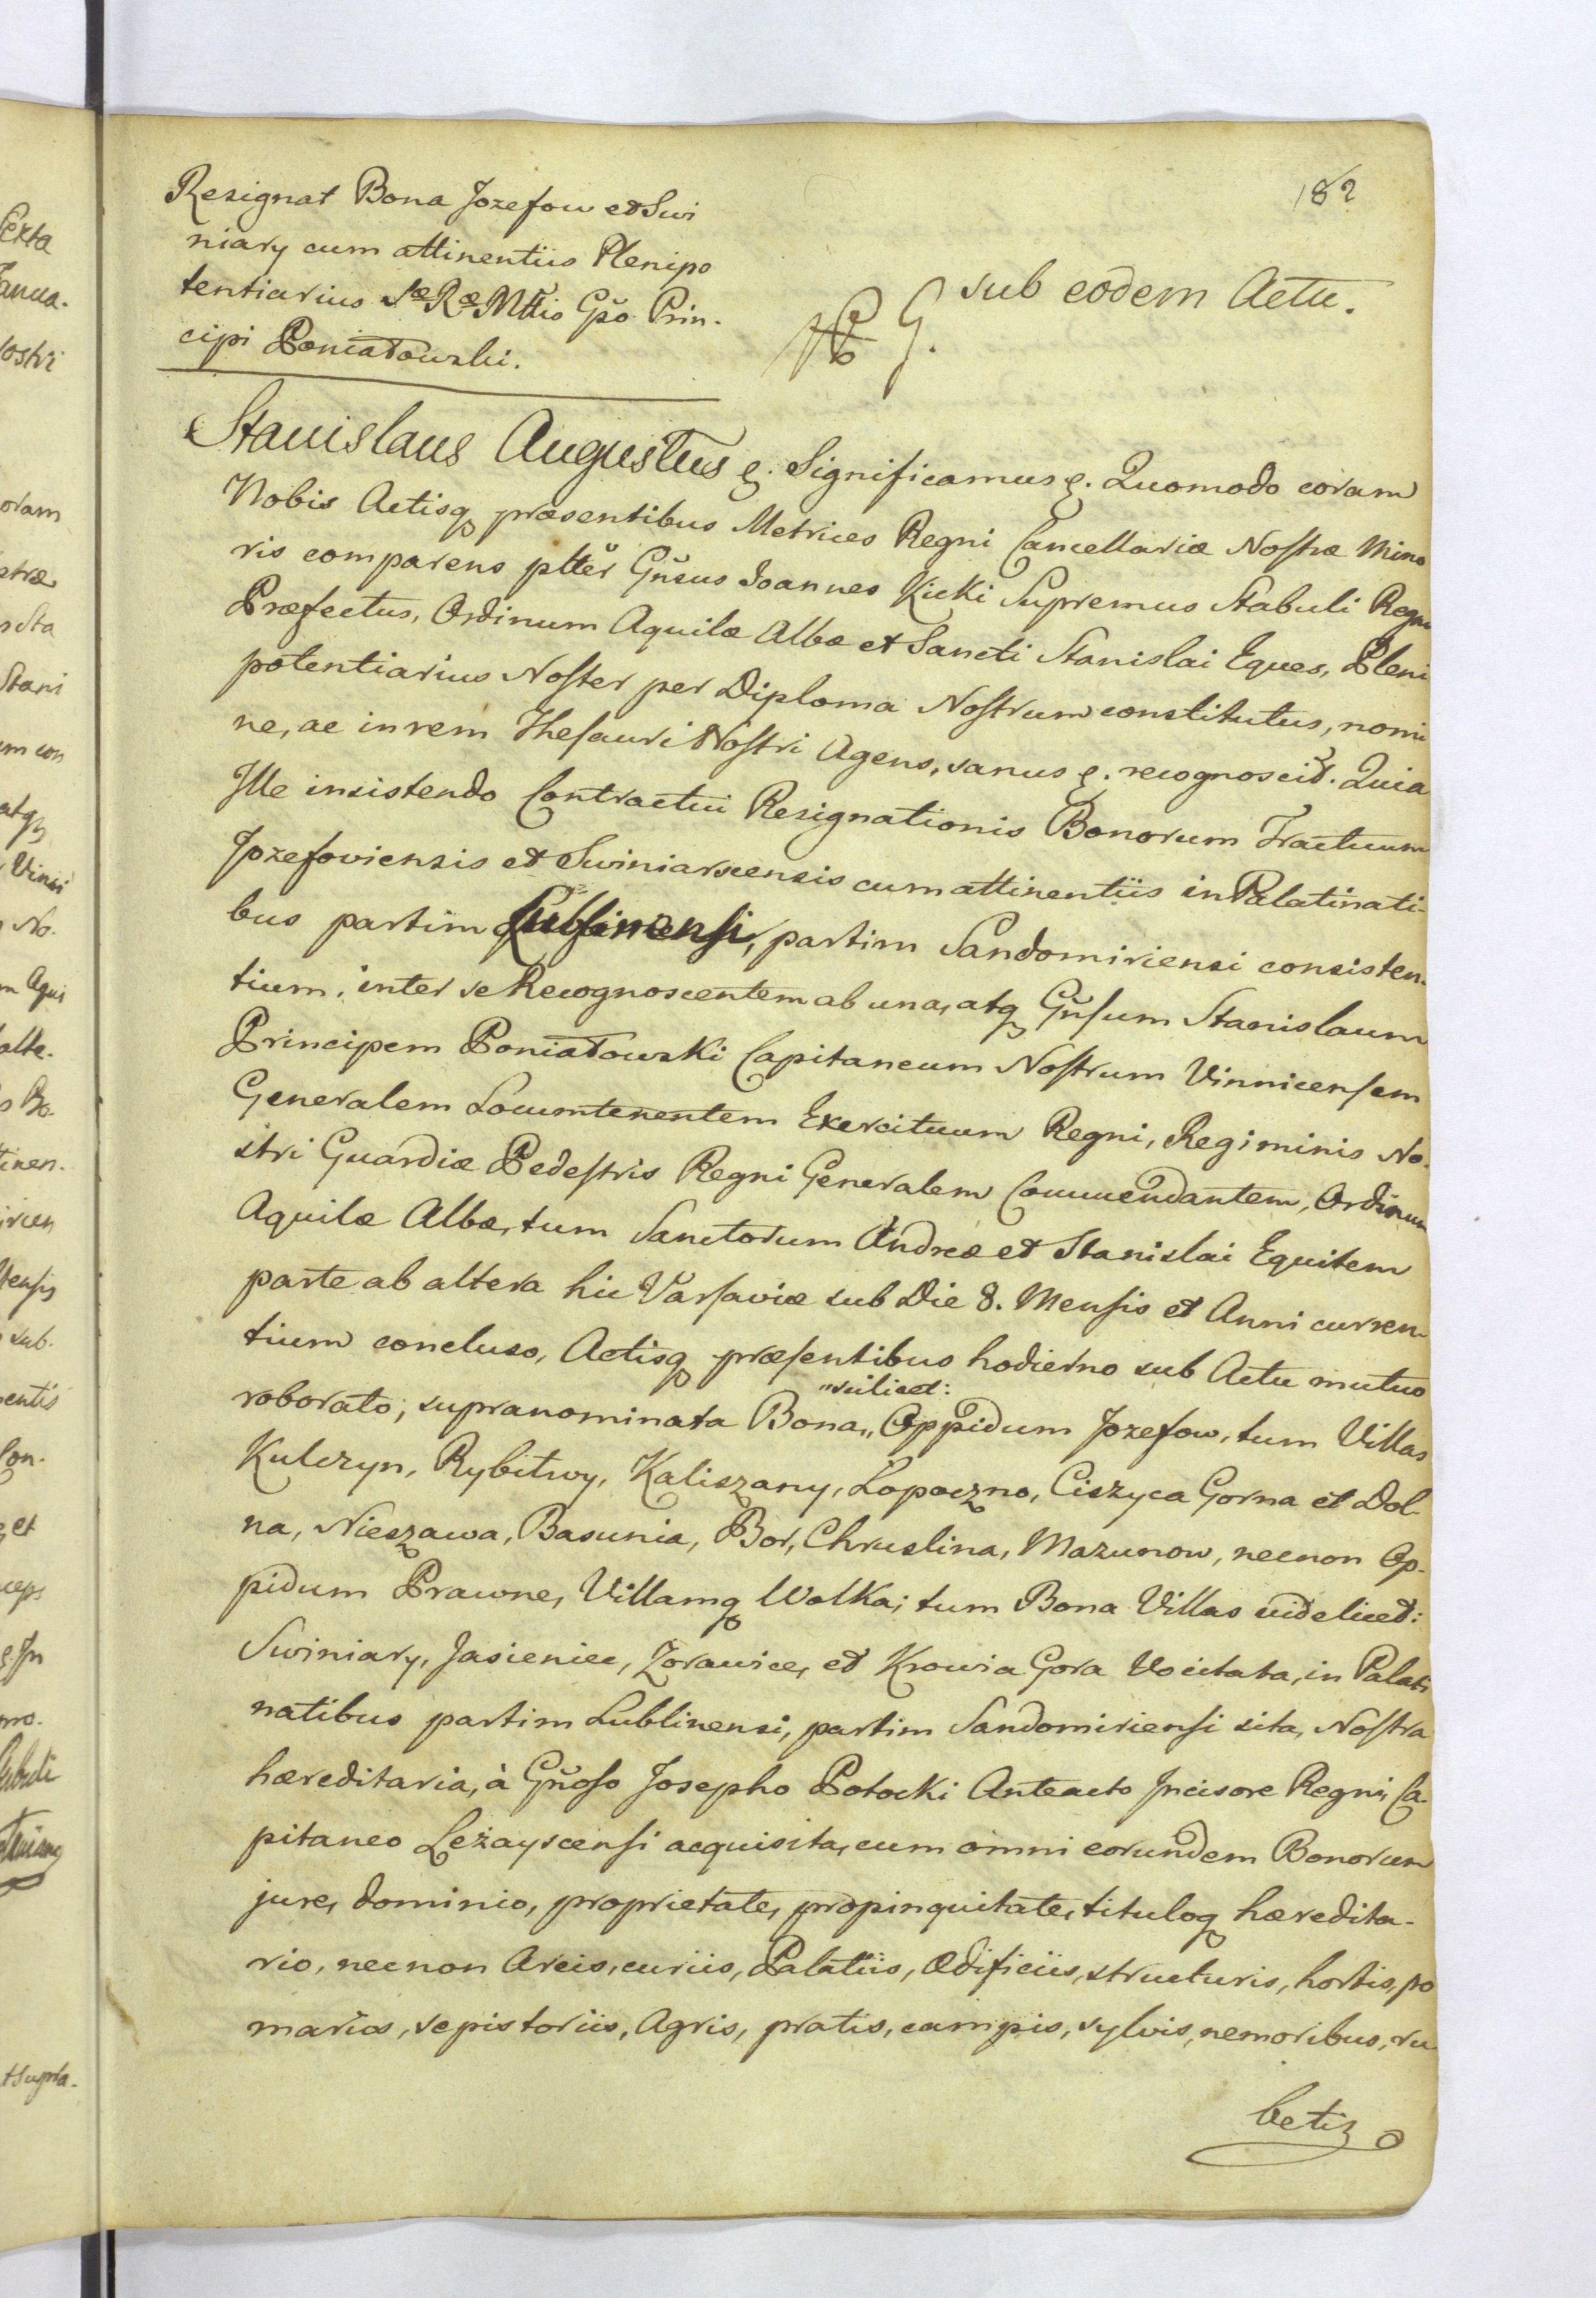 182
Resignat Bona Jozefow et Swi
niary cum attinentiis Plenipo
tentiarius Sæ Ræ Mttis Gso Prin-
cipi Poniatowski.
sub eodem Actu.
Stanislaus Augustus &. Significamus &. Quomodo coram
Nobis Actisq præsentibus Metrices Regni Cancellariæ Nostræ Mino
ris comparens pltter Gnsus Joannes Kicki Supremus Stabuli Regni
Præfectus, Ordinum Aquilæ Albæ et Sancti Stanislai Eques, Pleni
potentiarius Noster per Diploma Nostrum constitutus, nomi
ne, ac in rem Thesauri Nostri Agens, sanus &. recognoscit. Quia
Ille insistendo Contractui Resignationis Bonorum Tractuum
Jozefoviensis et Swiniarscensis cum attinentiis in Palatinati-
bus partim Lublinensi, partim Sandomiriensi consisten-
tium, inter se Recognoscentem ab una, atq Gnsum Stanislaum
Principem Poniatowski Capitaneum Nostrum Vinnicensem
Generalem Locumtenentem Exercituum Regni, Regiminis No-
stri Guardiæ Pedestris Regni Generalem Commendantem, Ordinum
Aquilæ Albæ, tum Sanctorum Andreæ et Stanislai Equitem
parte ab altera hic Varsaviæ sub Die 8. Mensis et Anni curren-
tium concluso, Actisq præsentibus hodierno sub Actu mutuo
roborato; supranominata Bona „scilicet: Oppidum Jozefow, tum Villas
Kulczyn, Rybitwy, Kaliszany, Lopoczno, Ciszyca Gorna et Dol-
na, Nieszawa, Basunia, Bor, Chruslina, Mazunow, necnon Op-
pidum Prawne, Villamq Wolka; tum Bona Villas videlicet:
Swiniary, Jasieniec, Zorawice, et Krowia Gora Vocitata, in Palati
natibus partim Lublinensi, partim Sandomiriensi sita, Nostra
hæreditaria, à Gnoso Josepho Potocki Anteacto Incisore Regni, Ca-
pitaneo Leżayscensi acquisita, cum omni eorundem Bonorum
jure, dominio, proprietate, propinquitate, tituloq hæredita-
rio, necnon Arcis, curiis, Palatiis, Ædificiis, structuris, hortis, po
mariis, sepistoriis, Agris, pratis, campis, sylvis, nemoribus, ru
betis